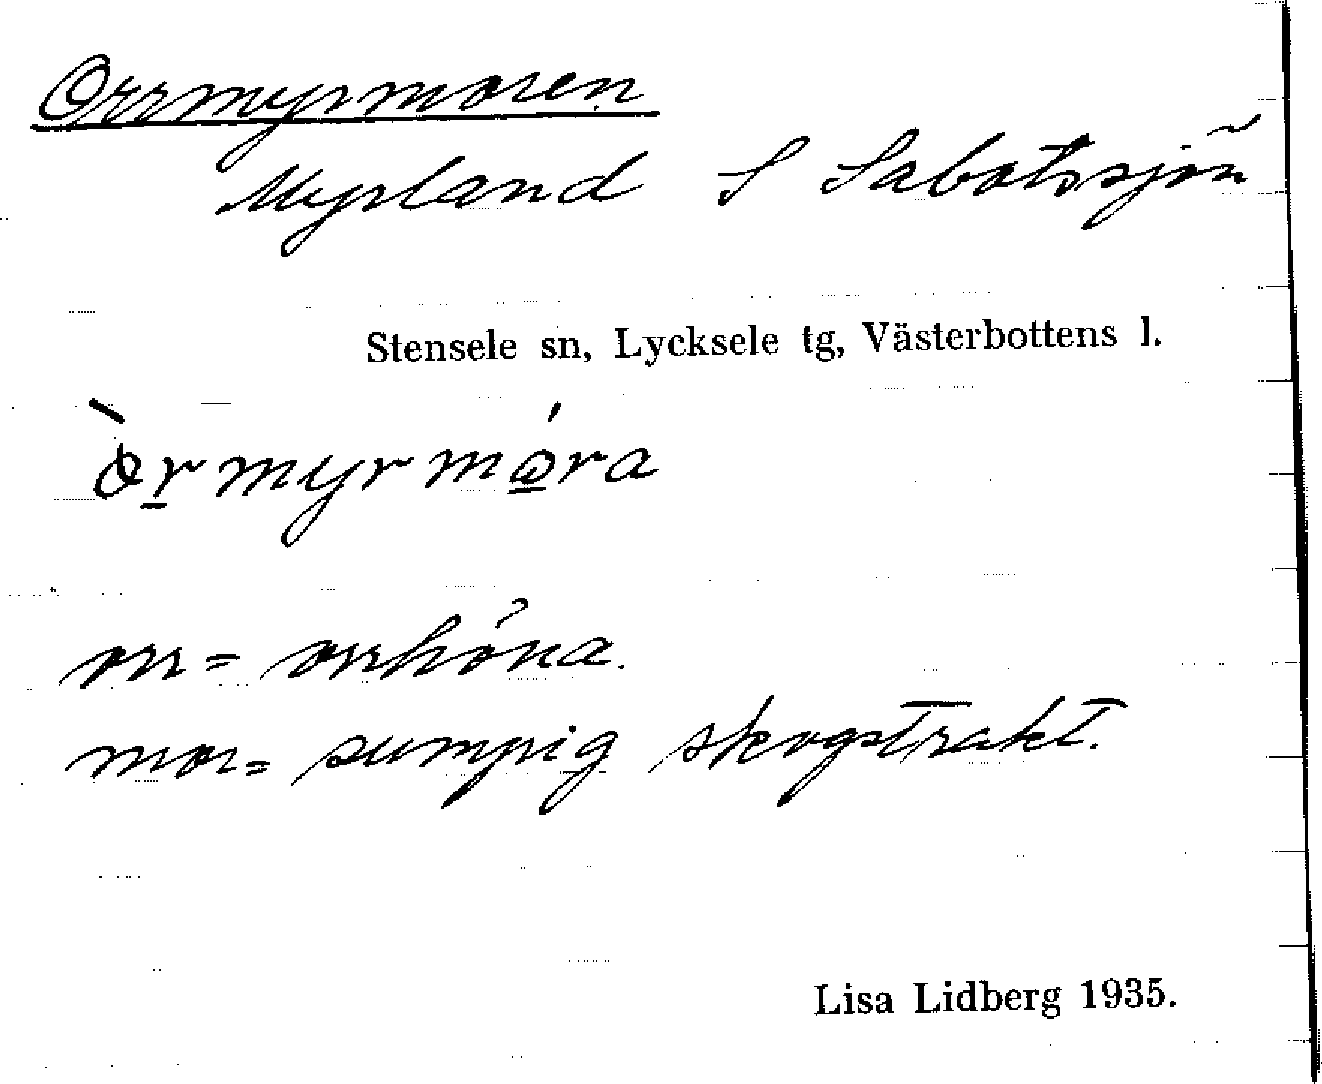 Orrmyrmoren
Myrland S Sabotssjön
Stensele sn, Lycksele tg, Västerbottens l.
ò̀r̲myrmǿ̲ra
orr = orrhöna.
mor = sumpig skogstrakt.
Lisa Lidberg 1935.